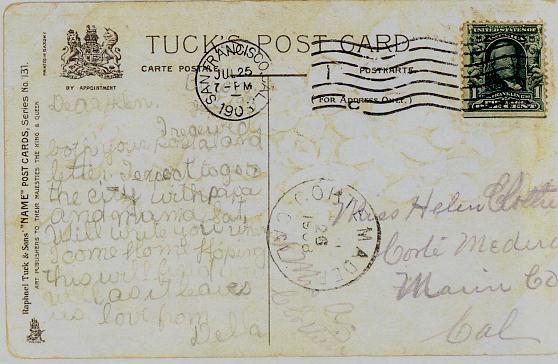 TUCK'S POST CARD
CARTE POSTALE
POSTKARTE
(FOR ADDRESS ONLY.)
BY APPOINTMENT
PRINTED IN SAXONY
Raphael Tuck & Sons' "NAME" POST CARDS, Series No. 131.
ART PUBLISHERS TO THEIR MAJESTIES THE KING & QUEEN
SAN FRANCISCO, CAL.
JUL 25
7-PM
190
1
C
FRANKLIN
1
CORTE MADERA
26
1908
CAL
Dear Hen.
I received
both your postal and
letter I expect to go to
the city with papa
and mama Sat
Will write you when
I come home Hoping
this will find
well as it leaves
us love from
Della
Miss Helen
Corte Medera
Marin Co
Cal